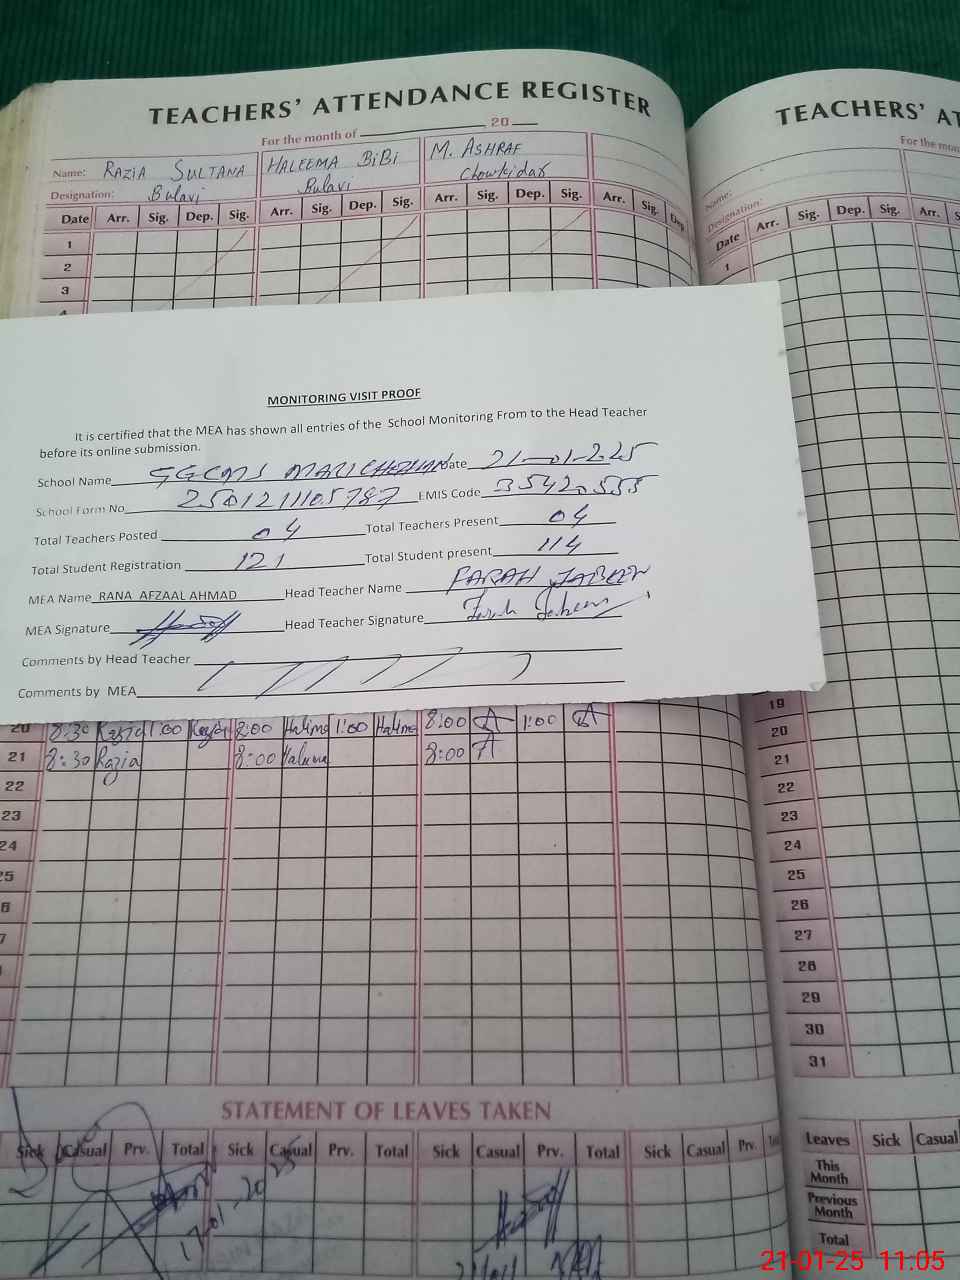 TEACHERS' ATTENDANCE REGISTER
For the month of ________ 20 __
Name: RAZIA SULTANA HALEEMA BiBi M. ASHRAF
Designation: Bulavi Bulavi Chowkidar
Date Arr. Sig. Dep. Sig. Arr. Sig. Dep. Sig. Arr. Sig. Dep. Sig. Arr. Sig. Dep
1
2
3
4
TEACHERS' AT
For the mon
Name:
Designation:
Date Arr. Sig. Dep. Sig. Arr. S
1
MONITORING VISIT PROOF
It is certified that the MEA has shown all entries of the School Monitoring From to the Head Teacher
before its online submission.
School Name GGCMS MARI Date 21-01-2025
School Form No 2501211105787 EMIS Code 35420555
Total Teachers Posted 04 Total Teachers Present 04
Total Student Registration 121 Total Student present 114
MEA Name RANA AFZAAL AHMAD Head Teacher Name FARAH JABEEN
MEA Signature Head Teacher Signature Farah Jabeen
Comments by Head Teacher
Comments by MEA
20 8:30 Razia 1:00 Razia 8:00 Halima 1:00 Halima 8:00 A 1:00 A
21 8:30 Razia 8:00 Halima 8:00 A
22
23
24
25
6
7
19
20
21
22
23
24
25
26
27
28
29
30
31
STATEMENT OF LEAVES TAKEN
Sick Casual Prv. Total Sick Casual Prv. Total Sick Casual Prv. Total Sick Casual Prv.
17-01-2025
Leaves Sick Casual
This Month
Previous Month
Total
21-01-25 11:05